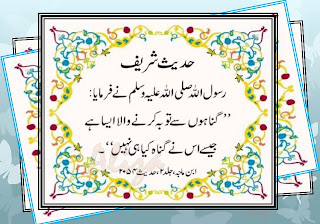 حدیث شریف
رسول اللہ صلی اللہ علیہ وسلم نے فرمایا:
’’گناہوں سے توبہ کرنے والا ایسا ہے
جیسے اس نے گناہ کیا ہی نہیں‘‘۔
ابن ماجہ، جلد ۲، حدیث ۲۰۵۴